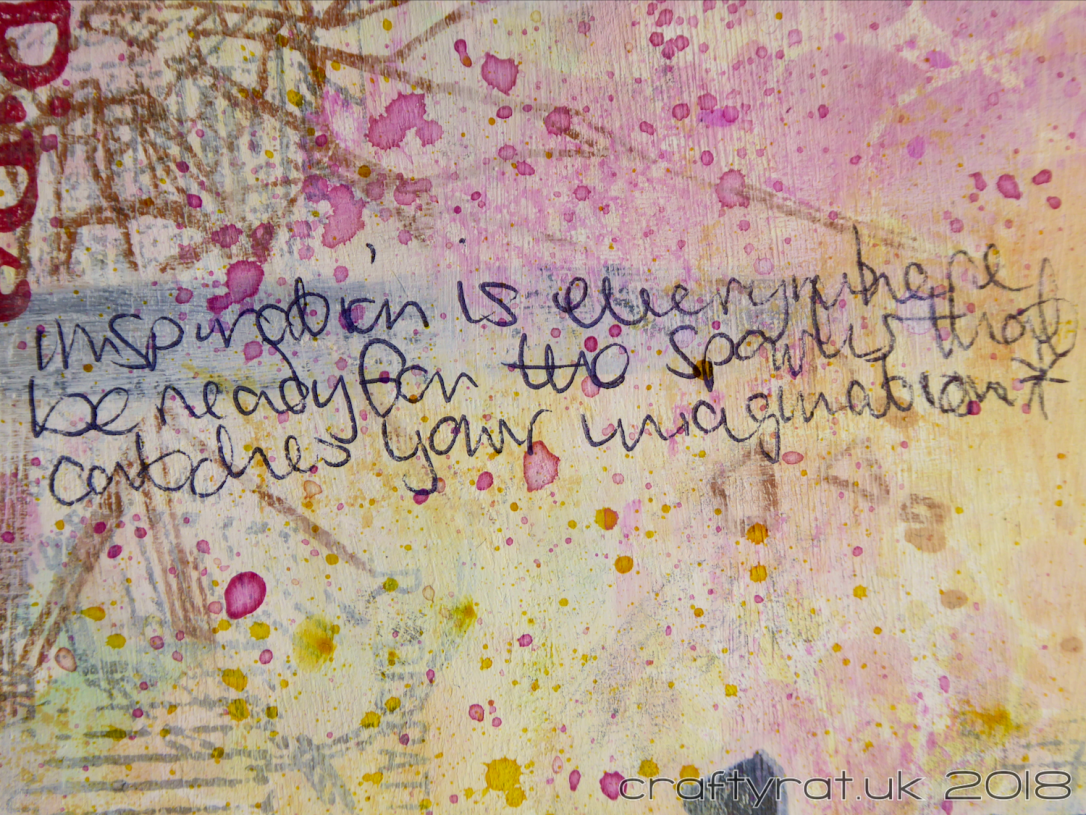 inspiration is everywhere,
be ready for the spark that
catches your imagination *
craftyrat.uk 2018